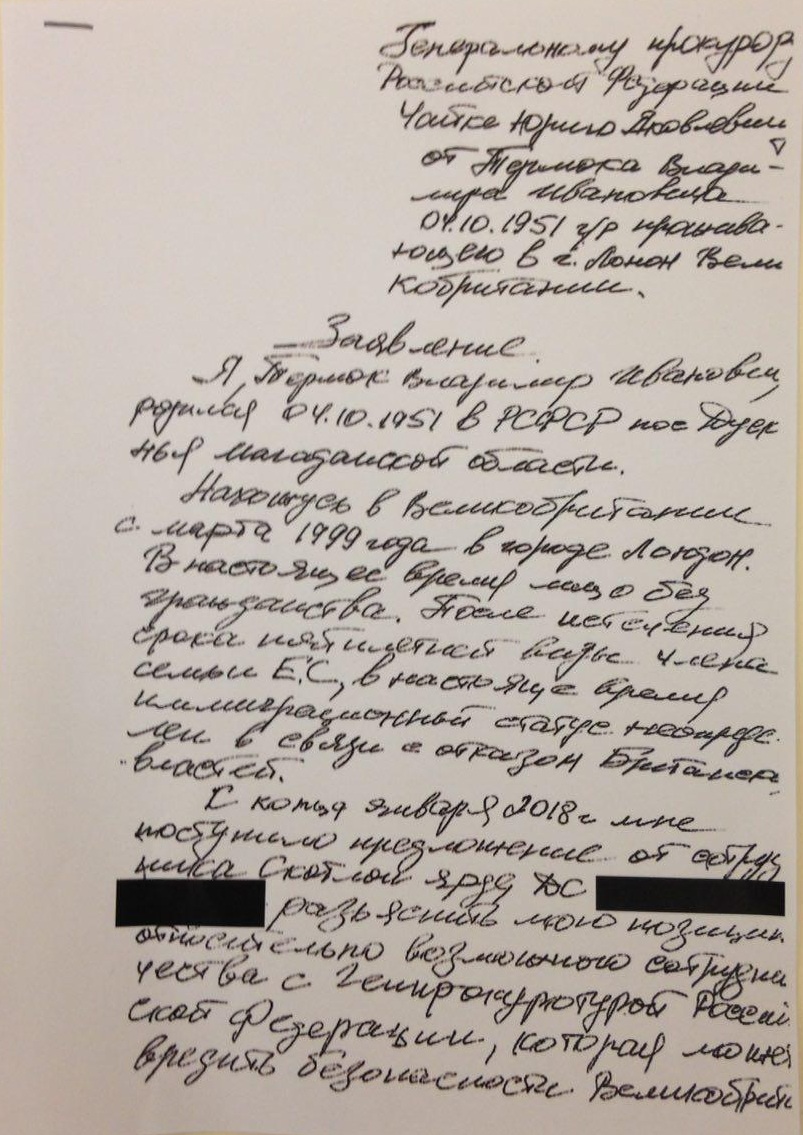 Генеральному прокурору
Российской Федерации
Чайке Юрию Яковлевич
от Термока Влади-
мира Ивановича
04.10.1951 г/р прожива-
ющего в г. Лонон Вели
кобритании.
Заявление.
Я, Термок Владимир Иванович,
родился 04.10.1951 в РСФСР пос
Магаданской области.
Нахожусь в Великобритании
с марта 1999 года в городе Лондон.
В настоящее время лицо без
гражданства. После истечения
срока пятилетней визы члена
семьи Е.С., в настояще время
иммиграционный статус неопреде-
лен в связи с отказом Британск
властей.
С конца января 2018 г. мне
поступило предложение от сотруд
ника Скотлон ярда ДС
разъяснить мою позицию
относительно возможного сотрудни
чества с Генпрокуротурой Россий
ской Федерации, которая может
вредить безопасности Великобрит